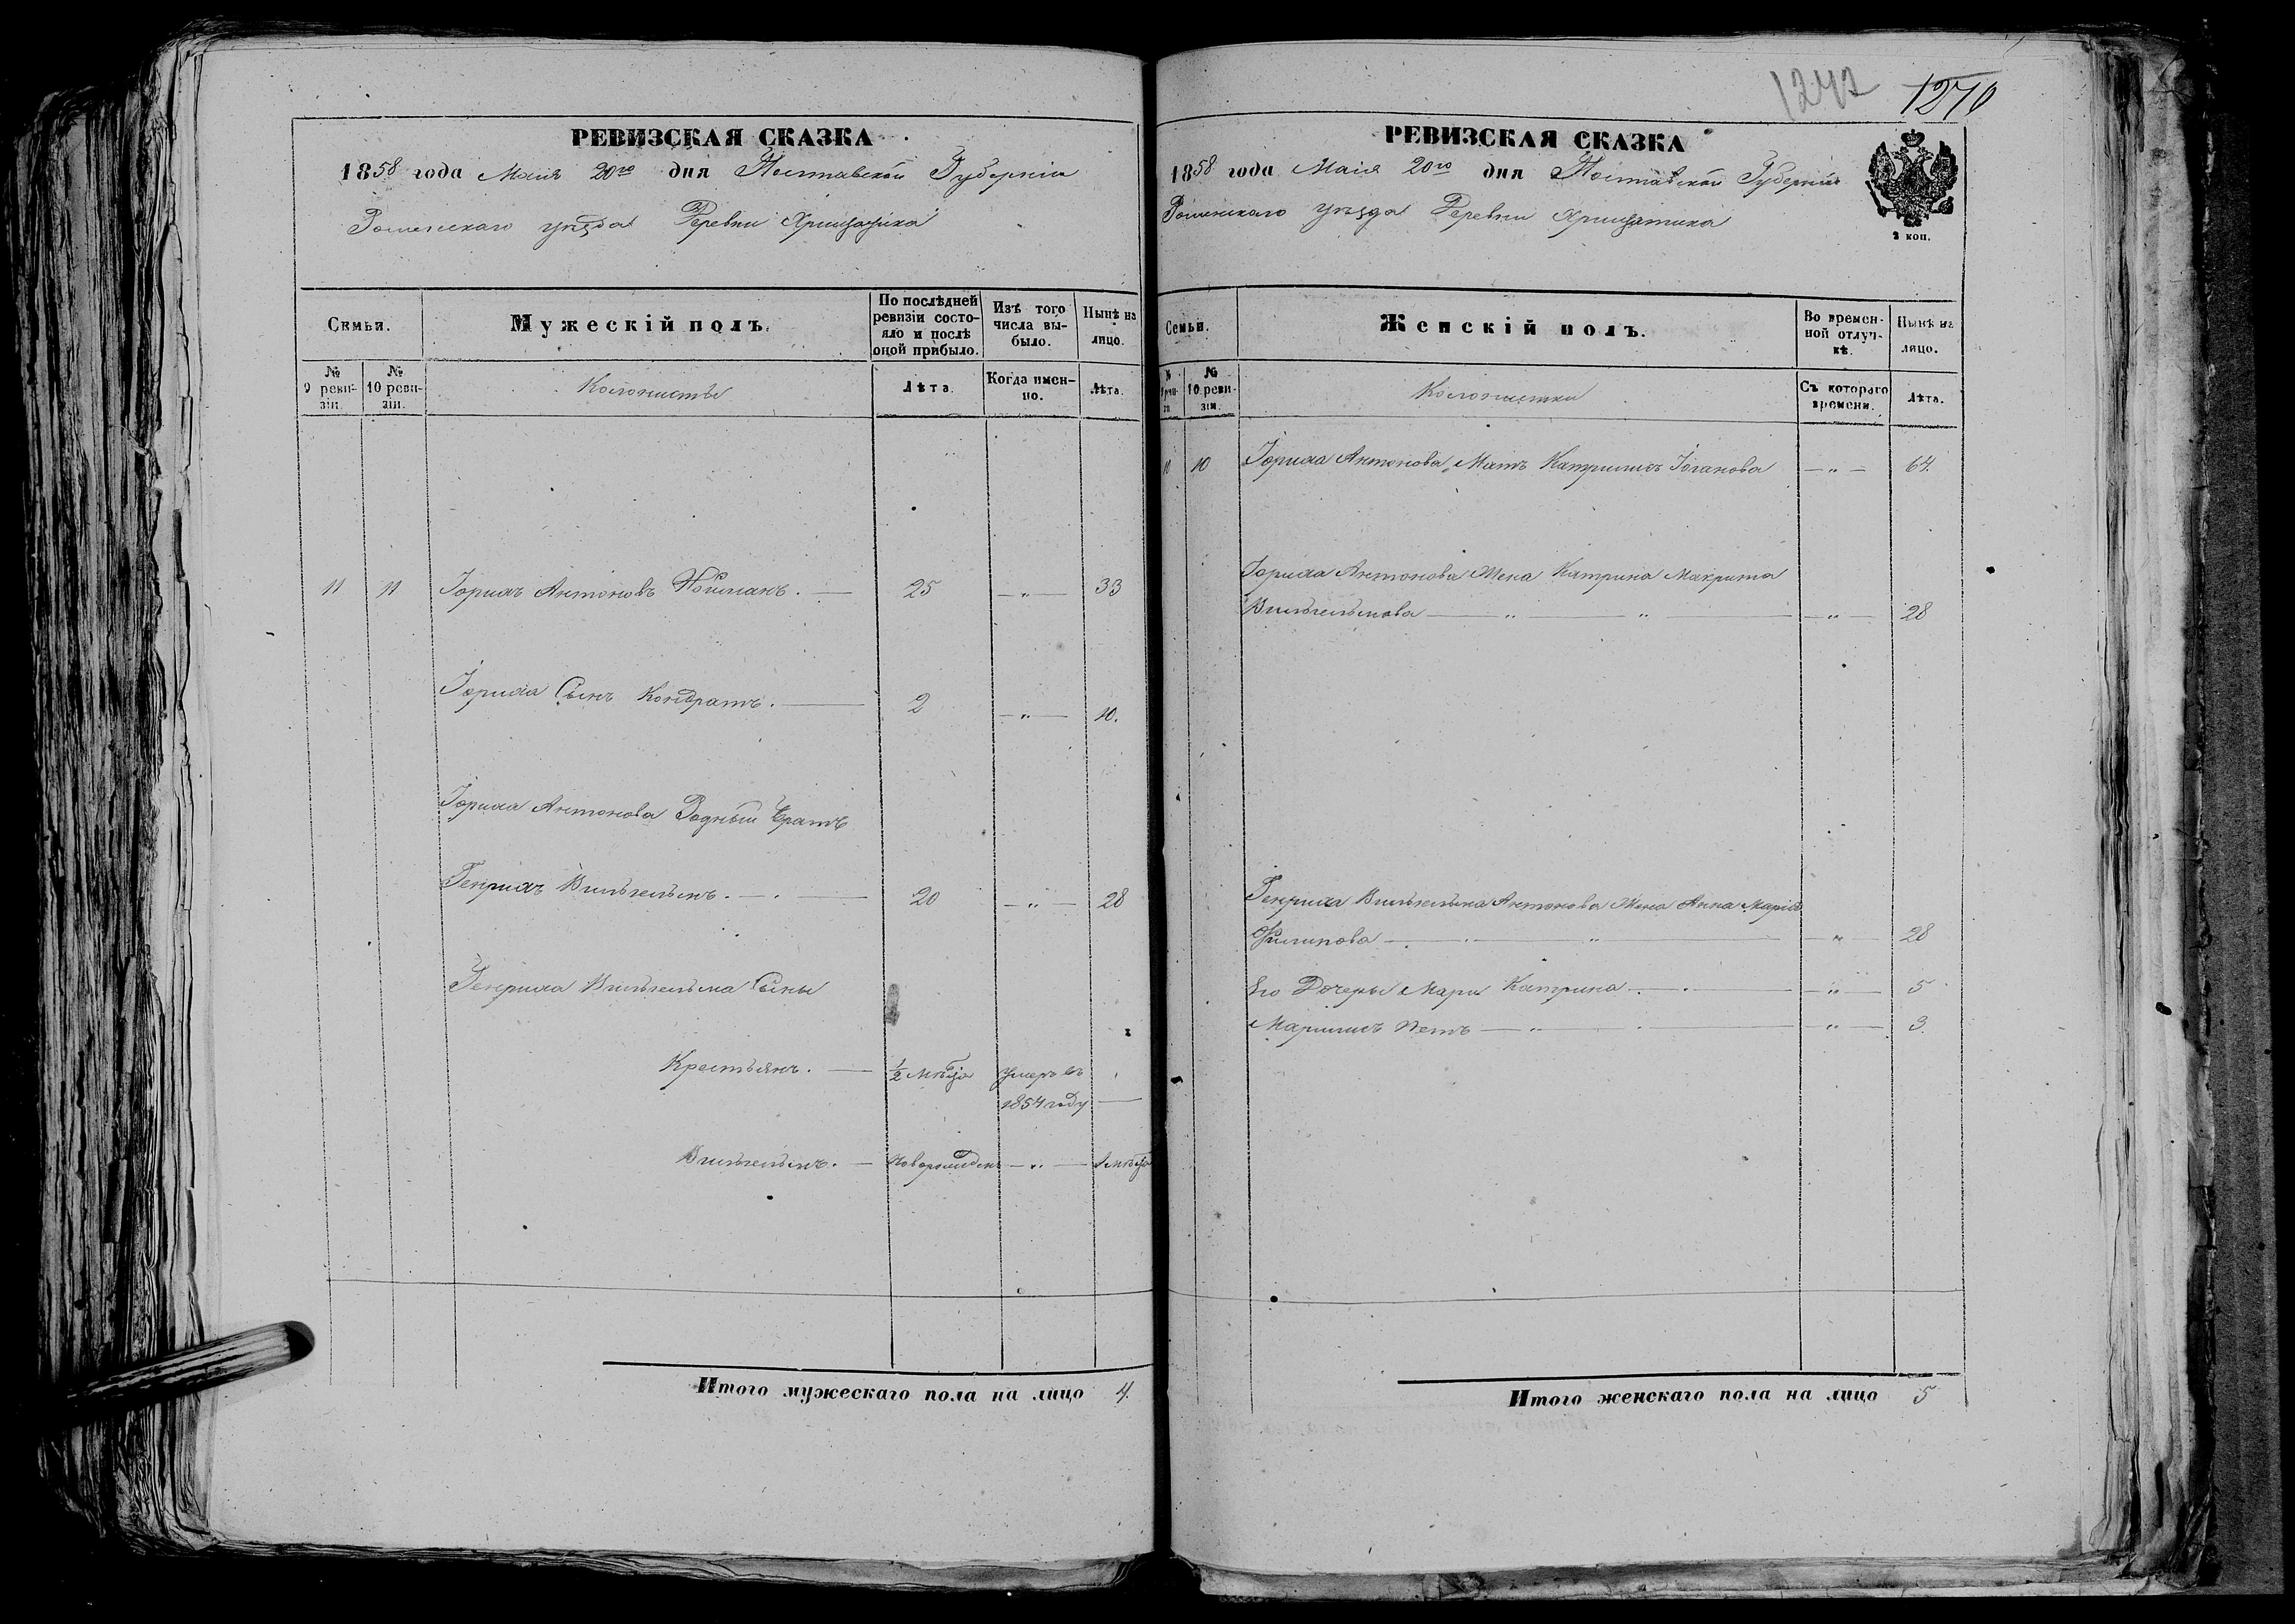 РЕВИЗСКАЯ СКАЗКА
1858 года Маія 20го дня Полтавской Губерніи
Роменскаго уѣзда Деревни Хрищатика
Семьи.
Мужескій полъ.
По послѣдней ревизіи состояло и послѣ оной прибыло.
Изъ того числа выбыло.
Нынѣ на лицо.
№ 9 ревизіи.
№ 10 ревизіи.
Колонисты
Лѣта.
Когда именно.
Лѣта.
11 11 Іорихъ Антоновъ 25 — „ — 33
Іориха Сынъ Кондратъ. — 2 — „ — 10.
Іориха Антонова Родный братъ
Генрихъ Вильгельмъ. — 20 — „ — 28
Генриха Вильгельма Сыны
Крестьянъ. — 1/2 мѣсца умеръ въ
1854 году —
Вильгельмъ. — новорожденъ — „ — 1 мѣсца
Итого мужескаго пола на лицо 4.
1242 1270
РЕВИЗСКАЯ СКАЗКА
1858 года Маія 20го дня Полтавской Губерніи
Роменскаго уѣзда Деревни Хрищатика
2 коп.
Семьи.
Женскій полъ.
Во временной отлучкѣ.
Нынѣ на лицо.
№ 9 ревизіи.
№ 10 ревизіи.
Колонистки
Съ котораго времени.
Лѣта.
10 10 Іориха Антонова Мать Катрилисъ Іоганова — „ — 64.
Іориха Антонова Жена Катрина Макрита
Вильгельмова — „ — „ — — „ — 28
Генриха Вильгельма Антонова Жена Анна Марія
Филипова — „ — — „ — 28
Его Дочери Мари Катрина — — „ — 5
Марилисъ — „ — — „ — 3
Итого женскаго пола на лицо 5